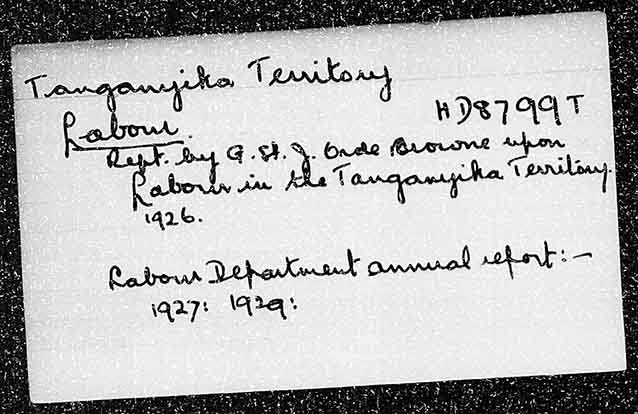 Tanganyika Territory
HD8799T
Labour.
Rept. by G. St. J. Orde Browne upon
Labour in the Tanganyika Territory.
1926.
Labour Department annual report:-
1927: 1929: